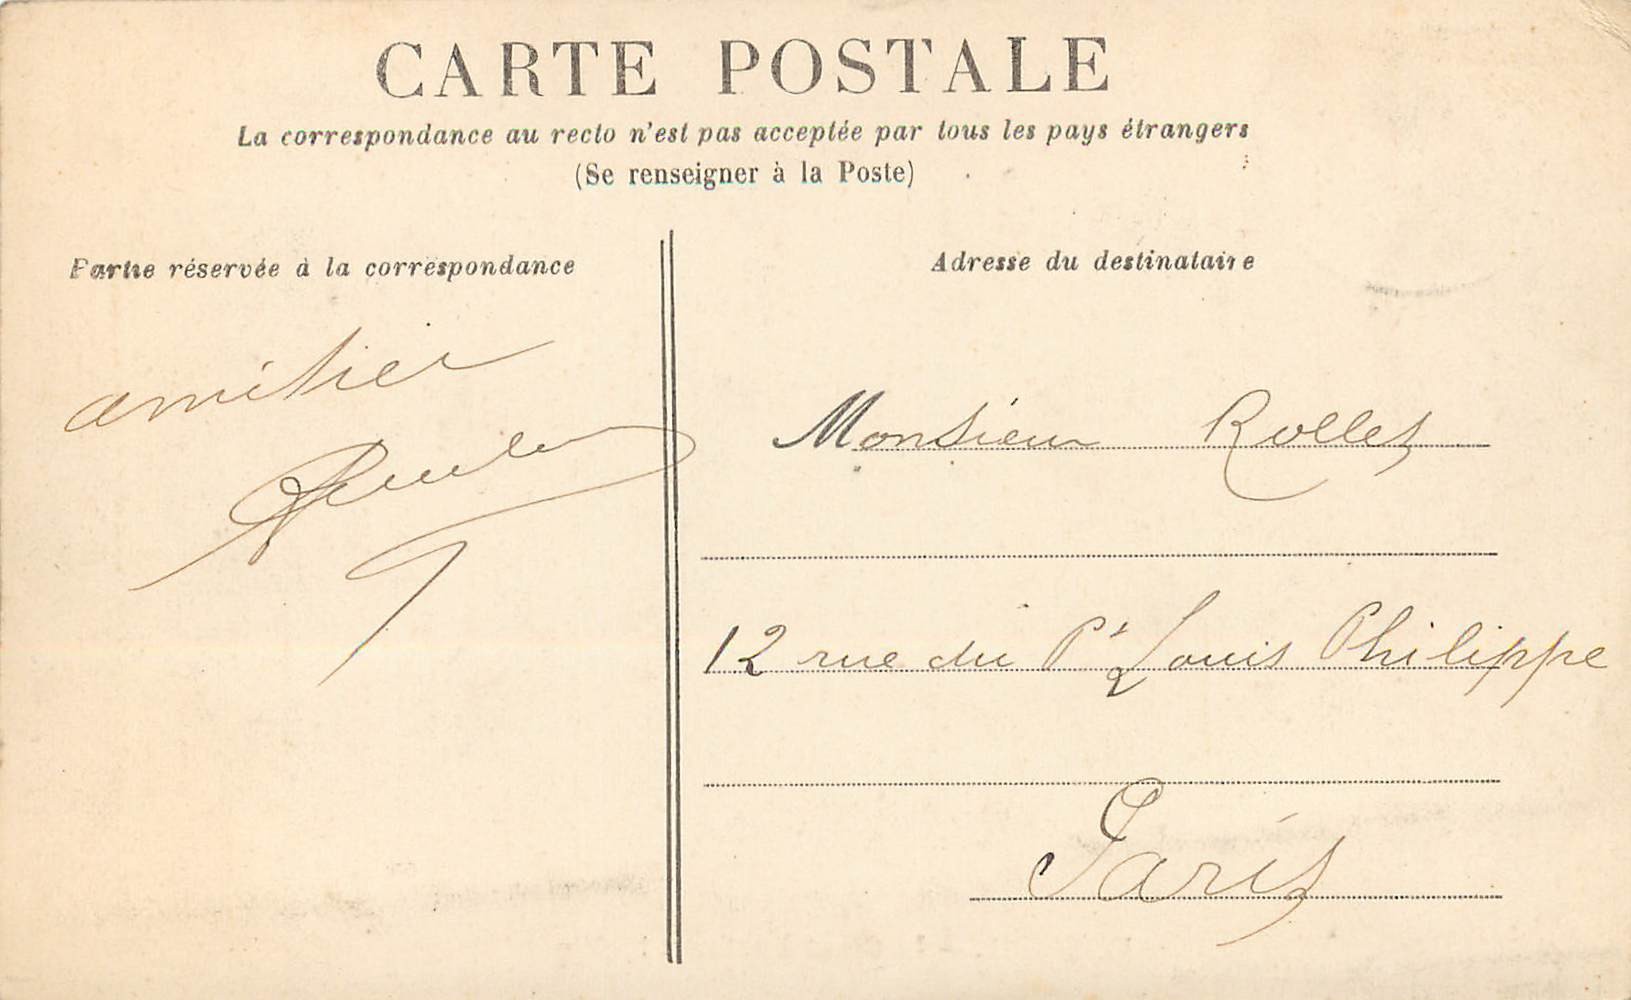 CARTE POSTALE
La correspondance au recto n'est pas acceptée par tous les pays étrangers
(Se renseigner à la Poste)
Partie réservée à la correspondance
amitier
Adresse du destinataire
Monsieur Rollet
12 rue du Pt Louis Philippe
Paris